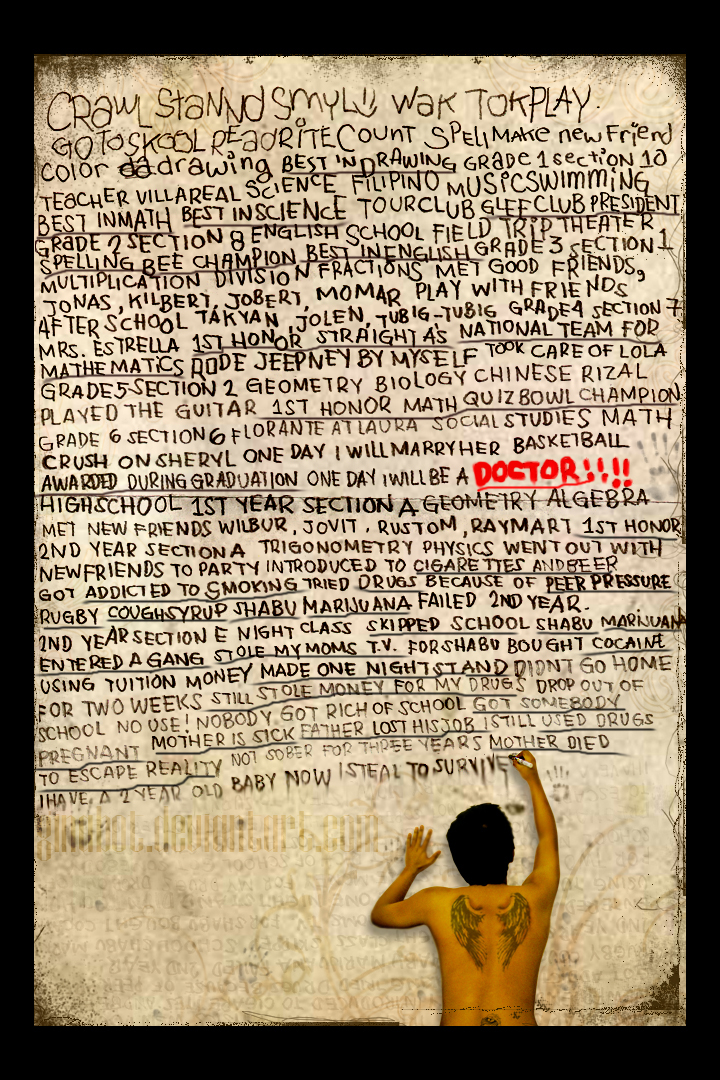 CRawL StaNNd SmyL!! waK TOKPLAY.
GO TO SKOOL REadRiTE Count SPELL Make new Friend
color da drawing BEST IN DRAWING GRADE 1 section 10
TEACHER VILLAREAL SCIENCE FILIPINO MUSIC SWIMMING
BEST INMATH BEST INSCIENCE TOURCLUB GLEE CLUB PRESIDENT
GRADE 2 SECTION 8 ENGLISH SCHOOL FIELD TRIP THEATER
SPELLING BEE CHAMPION BEST IN ENGLISH GRADE 3 SECTION 1
MULTIPLICATION DIVISION FRACTIONS MET GOOD FRIENDS,
JONAS, KILBERT, JOBERT, MOMAR PLAY WITH FRIENDS
AFTER SCHOOL TAKYAN, JOLEN, TUBIG-TUBIG GRADE4 SECTION 7
MRS. ESTRELLA 1ST HONOR STRAIGHT AS NATIONAL TEAM FOR
MATHEMATICS RODE JEEPNEY BY MYSELF TOOK CARE OF LOLA
GRADE5-SECTION 2 GEOMETRY BIOLOGY CHINESE RIZAL
PLAYED THE GUITAR 1ST HONOR MATH QUIZ BOWL CHAMPION
GRADE 6 SECTION 6 FLORANTE AT LAURA SOCIAL STUDIES MATH
CRUSH ON SHERYL ONE DAY I WILL MARRY HER BASKETBALL
AWARDED DURING GRADUATION ONE DAY I WILL BE A DOCTOR!!!!
HIGHSCHOOL 1ST YEAR SECTION A GEOMETRY ALGEBRA
MET NEW FRIENDS WILBUR, JOVIT, RUSTOM, RAYMART 1ST HONOR
2ND YEAR SECTION A TRIGONOMETRY PHYSICS WENT OUT WITH
NEWFRIENDS TO PARTY INTRODUCED TO CIGARETTES AND BEER
GOT ADDICTED TO SMOKING TRIED DRUGS BECAUSE OF PEER PRESSURE
RUGBY COUGHSYRUP SHABU MARIJUANA FAILED 2ND YEAR.
2ND YEAR SECTION E NIGHT CLASS SKIPPED SCHOOL SHABU MARIJUANA
ENTERED A GANG STOLE MY MOMS T.V. FOR SHABU BOUGHT COCAINE
USING TUITION MONEY MADE ONE NIGHT STAND DIDNT GO HOME
FOR TWO WEEKS STILL STOLE MONEY FOR MY DRUGS DROP OUT OF
SCHOOL NO USE! NOBODY GOT RICH OF SCHOOL GOT SOMEBODY
PREGNANT MOTHER IS SICK FATHER LOST HIS JOB I STILL USED DRUGS
TO ESCAPE REALITY NOT SOBER FOR THREE YEARS MOTHER DIED
I HAVE A 2 YEAR OLD BABY NOW I STEAL TO SURVIVE